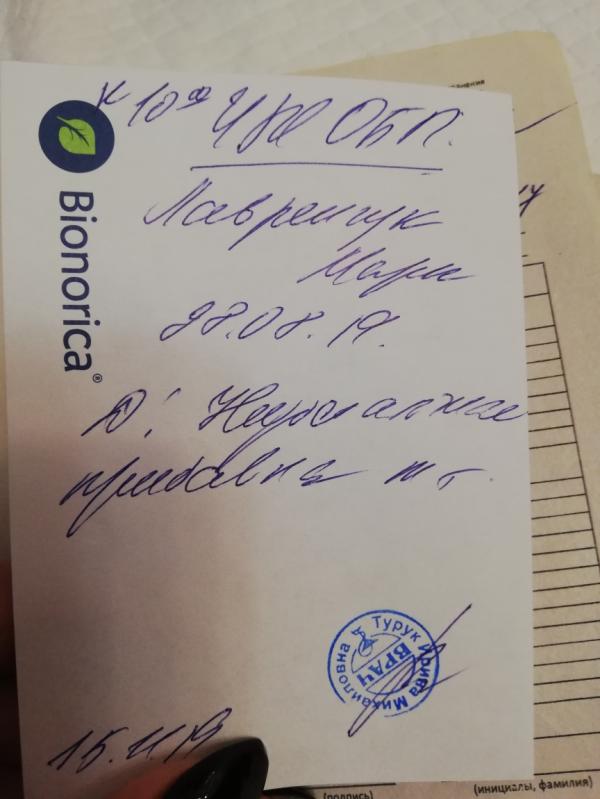 к 10 00 УЗИ ОБП.
Лавренчук
Марк
28.08.19.
D! Недостаточная
прибавка m т.
Bionorica®
Турук Ирина Михайловна
ВРАЧ
15.11.19
(подпись)
(инициалы, фамилия)